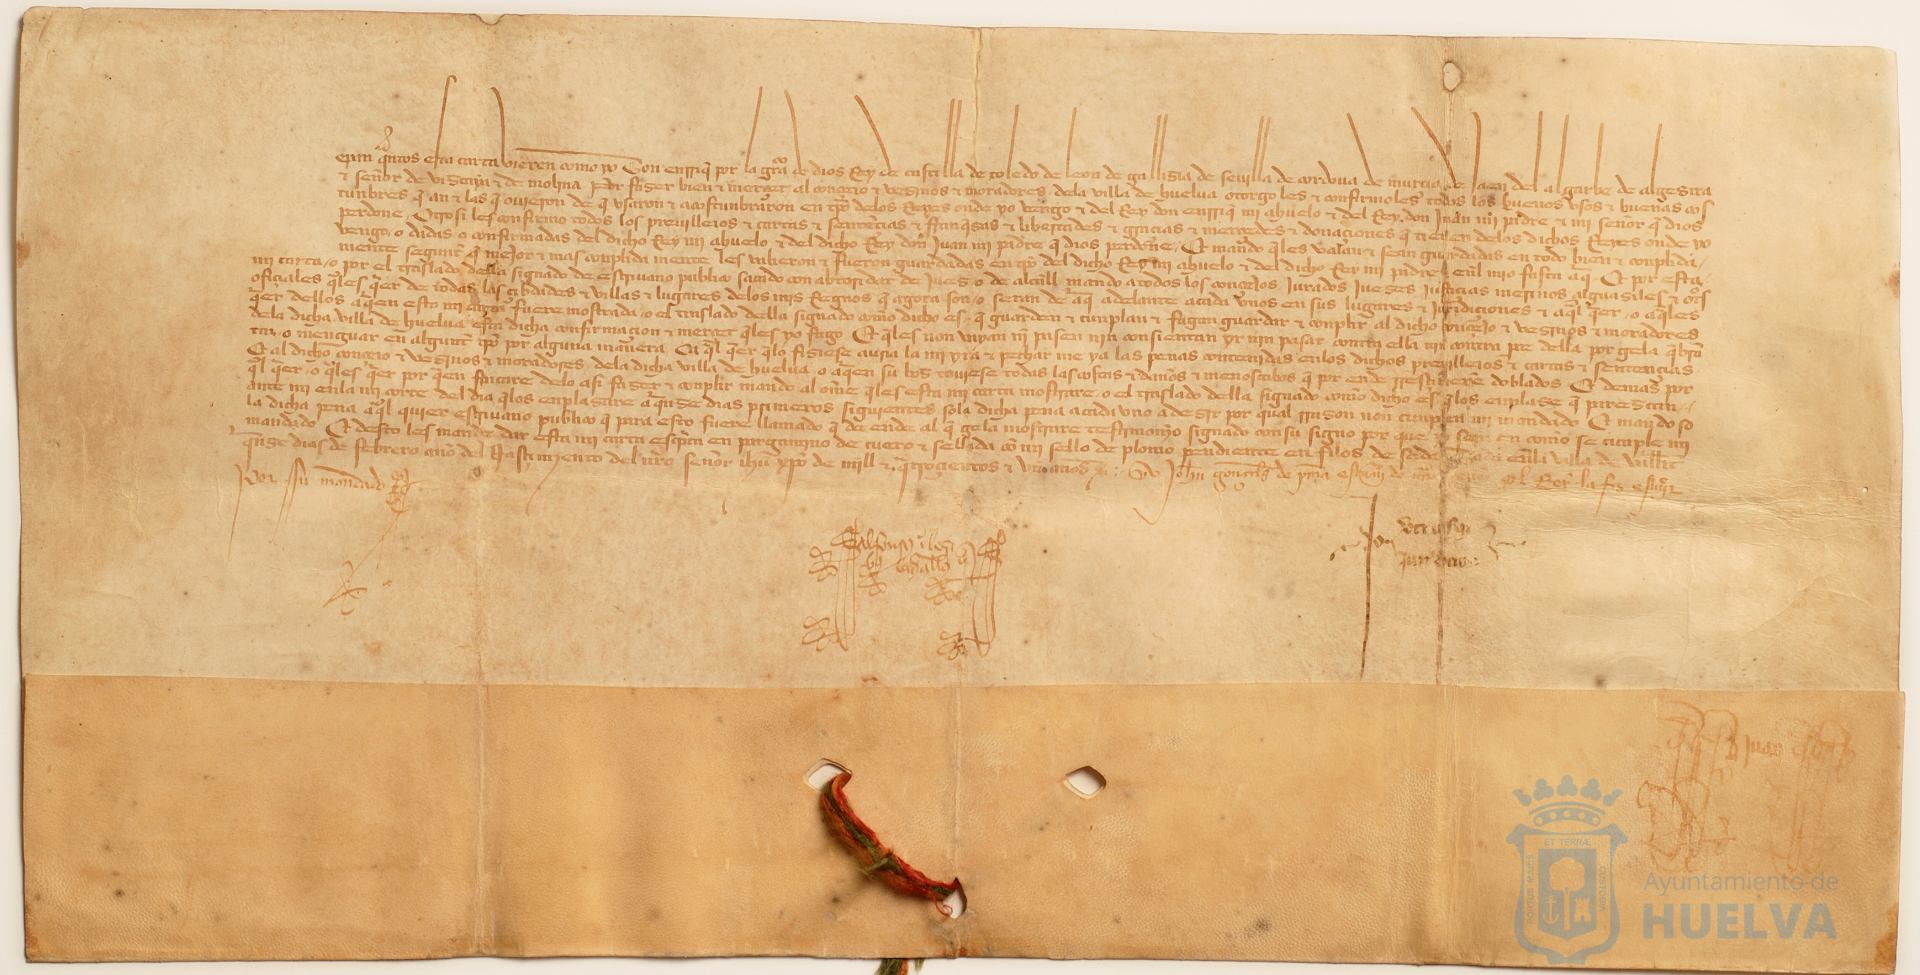 epan qntos esta carta vieren como yo Don enrriq por la gra de dios Rey de castilla de toledo de leon de gallisia de sevilla de cordova de murcia de Jaen del algarbe de algesira
& señor de viscaya & de molina Por faser bien & merçet al conçejo & vesinos & moradores dela villa de huelva otorgo les & confirmoles todos los buenos usos & buenas cos
tunbres q an & las q ovieron & de q usaron & acostunbraron en tpo delos Reyes onde yo vengo & del Rey don enrriq mi abuelo & del Rey don Juan mi padre & mi señor q dios
perdone Otrosi les confirmo todos los previllejos & cartas & sentençias & franqsas & libertades & graçias & merçedes & donaçiones q tienen delos dichos Reyes onde yo
vengo o dadas o confirmadas del dicho Rey mi abuelo & del dicho Rey don Juan mi padre q dios perdone Et mando q les valan & sean guardadas en todo bien & conplida
mente segunt q mejor & mas conplida mente les valieron & fueron guardadas en tpo del dicho Rey mi abuelo & del dicho Rey mi padre & enl mio fasta aq Et por esta
mi carta o por el traslado della signado de escrivano publico sacado con abtoridat de jues o de alcall mando a todos los conçejos jurados jueses justiçias merinos alguasiles & otros
ofiçiales qles qer de todas las çibdades & villas & lugares delos mis Regnos q agora son o seran de aq adelante a cada unos en sus lugares & juridiçiones & aql qer o aqles
qer dellos aqen esta mi carta fuere mostrada o el traslado della signado como dicho es q guarden & cunplan & fagan guardar & conplir al dicho conçejo & vesinos & moradores
dela dicha villa de huelva esta dicha confirmaçion & merçet q les yo fago Et q les non vayan ni pasen nin consientan yr nin pasar contra ella nin contra pte della por gela qbran
tar o menguar en algunt tpo por alguna manera Ca ql qer q lo fisiese avria la mi yra & pechar me ya las penas contenidas enlos dichos previllejos & cartas & sentençias
Et al dicho conçejo & vesinos & moradores dela dicha villa de huelva o aqen su bos toviese todas las costas & daños & menoscabos q por ende rresçibieren doblados Et demas por
ql qer o qles qer por qen fincare delo asi faser & conplir mando al ome q les esta mi carta mostrare o el traslado della signado como dicho es q los enplase q parescan
ante mi enla mi corte del dia q los enplasare a qnse dias primeros siguientes sola dicha pena a cada uno a desir por qual rrason non cunplen mi mandado Et mando so
la dicha pena a ql quier escrivano publico q para esto fuere llamado q de ende al q gela mostrare testimonio signado con su signo por que yo sepa en como se cunple mi
mandado Et desto les mande dar esta mi carta escripta en pargamino de cuero & sellada con mi sello de plomo pendiente en filos de seda dada enla villa de
qnse dias de febrero año del Nasçimiento del nro señor ihu xpo de mill & qtroçientos & un años Yo Johan gonçals de pina escrivano de nro señor el Rey la fis escrivir
por su mandado
Alfonsus
Juan
Ayuntamiento de
HUELVA